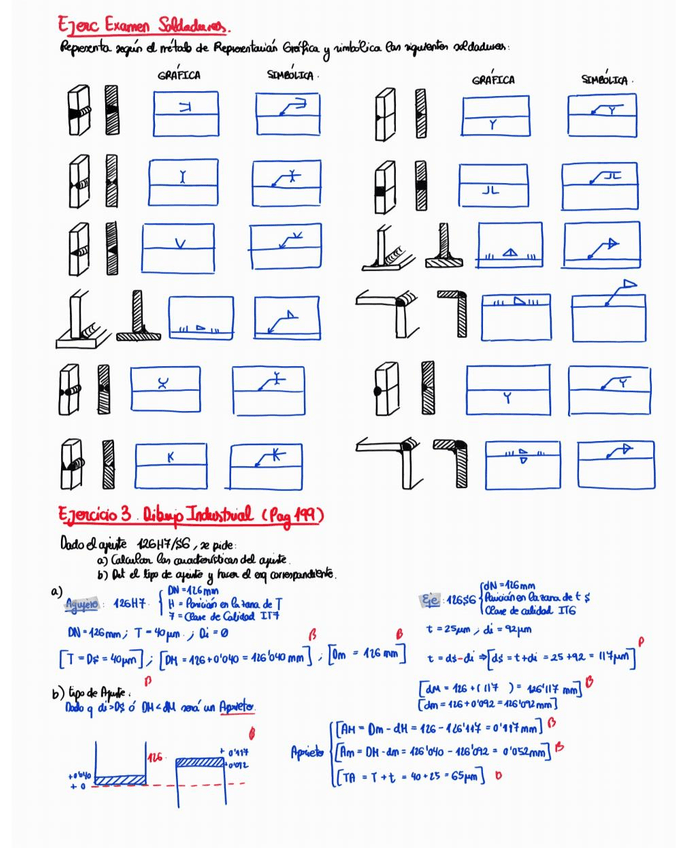 Ejerc Examen Soldaduras.
Representa según el método de Representación Gráfica y simbólica las siguientes soldaduras:
GRÁFICA SIMBÓLICA. GRÁFICA SIMBÓLICA.
Ejercicio 3. Dibujo Industrial (Pag 199)
Dado el ajuste 126H7/S6, se pide:
a) Calcular las características del ajuste.
b) Det el tipo de ajuste y hacer el esq correspondiente.
a)
Agujero: 126H7.
DN = 126 mm
H = Posición en la zona de T
7 = Clase de Calidad IT7
Eje: 126S6
DN = 126 mm
Posición en la zona de t S
Clase de calidad IT6
DN = 126 mm; T = 40 μm.; Di = 0
t = 25 μm, di = 92 μm
[T = Ds = 40 μm]; [DM = 126 + 0'040 = 126'040 mm]; [Dm = 126 mm]
t = ds - di ⇒ [ds = t + di = 25 + 92 = 117 μm]
[dM = 126 + (117 ) = 126'117 mm]
[dm = 126 + 0'092 = 126'092 mm]
b) tipo de Ajuste.
Dado q di > Ds ó DM < dM será un Aprieto.
Aprieto
[AM = Dm - dM = 126 - 126'117 = 0'117 mm]
[Am = DM - dm = 126'040 - 126'092 = 0'052 mm]
[TA = T + t = 40 + 25 = 65 μm]
126
+0'040
+0
+0'117
+0'092